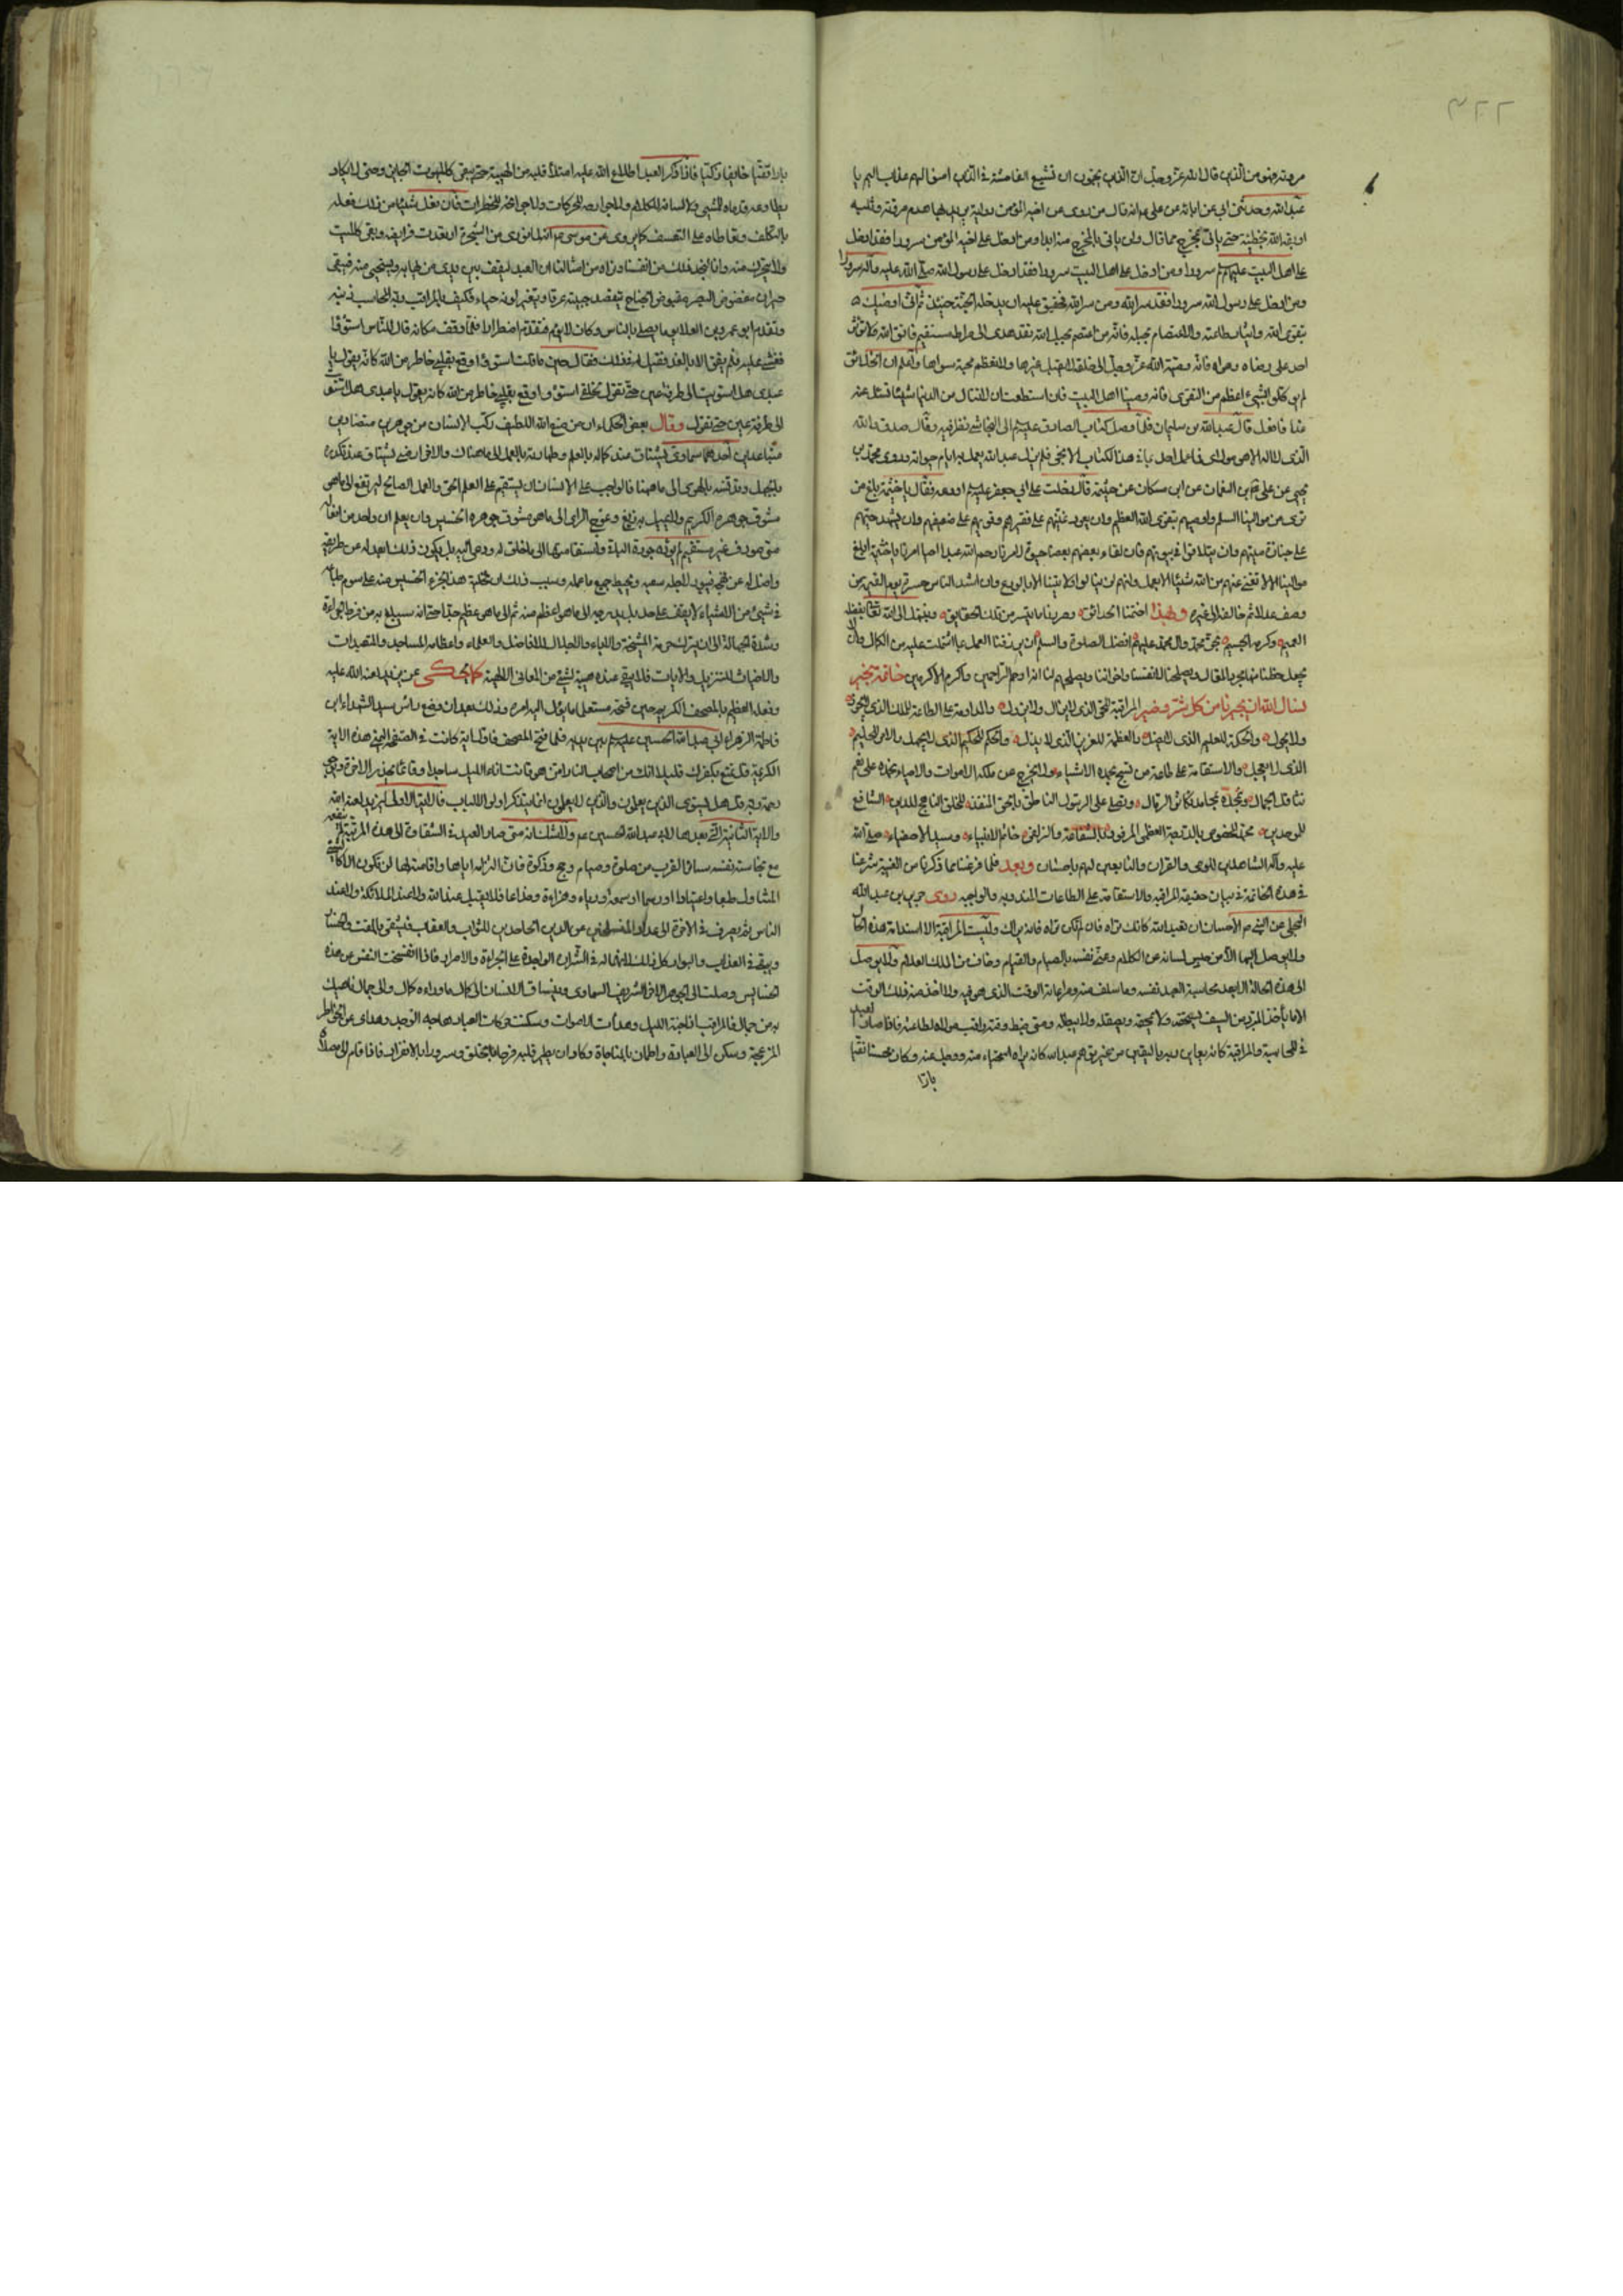 ٣٢٢
مروته فهو من الذين قال الله عز وجل ان الذين يحبون ان تشيع الفاحشة في الذين امنوا لهم عذاب اليم يا
عبد الله وحدثني ابي عن ابائه عن علي انه قال من روى عن اخيه المؤمن رواية يريد بها هدم مروته وثلبه
اوبقه الله بخطيئته حتى يأتي بمخرج مما قال ولن يأتي بالمخرج منه ابدا ومن ادخل على اخيه المؤمن سرورا فقد ادخل
على اهل البيت عليهم سرورا ومن ادخل على اهل البيت سرورا فقد ادخل على رسول الله صلى الله عليه وآله سرورا
ومن ادخل على رسول الله سرورا فقد سر الله ومن سر الله فحقيق عليه ان يدخله الجنة حينئذ ثم اني اوصيك
بتقوى الله وايثار طاعته والاعتصام بحبله فانه من اعتصم بحبل الله فقد هدى الى صراط مستقيم فاتق الله ولا تؤثر
احدا على رضاه وهواه فانه وصية الله عز وجل الى خلقه لا يقبل غيرها ولا يعظم سواها واعلم ان الخلائق
لم يوكلوا بشيء اعظم من التقوى فانه وصيتنا اهل البيت فان استطعت ان لا تنال من الدنيا شيئا تسئل عنه
غدا فافعل قال عبد الله بن سليمان فلما وصل كتاب الصادق عليه الى النجاشي نظر فيه وقال صدق والله
الذي لا اله الا هو مولاي فما عمل احد بما في هذا الكتاب الا نجى فلم يزل عبد الله يعمل به ايام حيوته وروى محمد بن
يحيى عن علي بن النعمان عن ابن مسكان عن خيثمة قال دخلت على ابي جعفر عليه اودعه فقال يا خيثمة ابلغ من
ترى من موالينا السلم واوصهم بتقوى الله العظيم وان يعود غنيهم على فقيرهم وقويهم على ضعيفهم وان يشهد حيهم
على جنازة ميتهم وان يتلاقوا في بيوتهم فان لقاء بعضهم بعضا حيوة لامرنا رحم الله عبدا احيا امرنا يا خيثمة ابلغ
موالينا انا لا نغني عنهم من الله شيئا الا بعمل وانهم لن ينالوا ولايتنا الا بالورع وان اشد الناس حسرة يوم القيمة من
وصف عدلا ثم خالفه الى غيره وبهذا اختمنا الحدائق
العميم وكرمه الجسيم بحق محمد وال محمد عليهم افضل الصلوة والسلم ان يرزقنا العمل بما اشتملت عليه من الكمال وان
يجعل حظنا منها مجرد المقال ويصلحنا لانفسنا واخواننا ويصلحهم لنا انه ارحم الراحمين واكرم الاكرمين خاتمة بخير
نسال الله ان يجيرنا من كل شر وضير المراقبة للحي الذي لا ينال ولا يزول والمداومة على الطاعة للملك الذي لا يحور
ولا يحول والحكمة للعليم الذي لا يضل والعظمة للعزيز الذي لا يذل والحكم للحكيم الذي لا يجهل والامر للحليم
الذي لا يعجل والاستقامة على طاعة من تسبح بحمده الاشياء ولا يخرج عن ملكه الاموات والاحياء نحمده على نعم
تثاقل الجبال ونمجده بمحامد تكاثر الرمال ونصلي على الرسول الناطق بالحق المنقذ للخلق الناهج للدين الشافع
للموحدين محمد المخصوص بالدرجة العظمى المرفود بالشفاعة والزلفى خاتم الانبياء وسيد الاصفياء صلى الله
عليه وآله الشاهدين للوحي والقران والتابعين لهم باحسان وبعد فلما فرغنا مما ذكرنا من الغيبة شرعنا
في هذه الخاتمة في بيان حقيقة المراقبة والاستقامة على الطاعات المندوبة والواجبة روى جرير بن عبد الله
البجلي عن النبي الاحسان ان تعبد الله كانك تراه فان لم تكن تراه فانه يراك وليست المراقبة الا استدامة هذه الحال
ولا يوصل اليها الا من حبس لسانه عن الكلام وعنى نفسه بالصيام والقيام وخاف من الملك العلام ولا يوصل
الى هذه الحالة الا بعد محاسبة العبد نفسه وما سلف منه ومراعاة الوقت الذي هو فيه ولا اخذ منه ذلك الوقت
الا ما يأخذ المبرد من السيف ليحققه ولا يمحقه ويصقله ولا يبطله ومتى حفظ وقته وراقب مولاه لطاعته فاذا صار العبد
في المحاسبة والمراقبة كانه يعاين ربه باليقين من غير توهم صار كانه يراه استحياء منه ووجل عنه وكان محسنا تقيا
بارا
بارا تقيا خايفا زكيا فاذا ذكر العبد اطلاع الله عليه امتلأ قلبه من الهيبة حتى يبقى كالمبهوت الحاني وحتى لا يكاد
يطاوعه قدماه للمشي ولا لسانه للكلام ولا جوارحه للحركات ولا جوانحه للخطرات فان فعل شيئا من ذلك فعله
بالتكلف وتعاطاه على التعسف كما روى عن موسى انه لما نودي من الشجرة ارتعدت فرايصه وبقى كالميت
ولا يتحرك منه وانا نجد ذلك من انفسنا ونراه من امثالنا ان العبد ليقف بين يدي من يهابه ويستحيي منه فيبقى
حيران مغضوض البصر مقبوض الجناح يتفصد جبينه عرقا ويتغير لونه حياء فكيف بالمراقب ربه المحاسب ذنبه
وتقدم ابو عمرو بن العلا يوما يصلي بالناس وكان لا يؤم فتقدم اضطرارا فلما وقف مكانه قال للناس استووا
فغشي عليه فلم يفق الا بالغد فقيل له في ذلك فقال حين ما قلت استووا وقع بقلبي خاطر من الله كانه يقول يا
عبدي هل استويت لي طرفة عين حتى تقول لخلقي استووا
الى طرفة عين حتى تقول وقال بعض الحكماء ان من صنع الله اللطيف ركب الانسان من جوهرين متضادين
متباعدين احدهما سماوي يشتاق عند كماله بالعلم وطهارته بالعمل الى ما هناك والاخر ارضي يشتاق عند تكدره
بالجهل وتدنسه بالهوى الى ما ههنا فالواجب على الانسان ان يستقيم على العلم الحق والعمل الصالح ليرتفع الى ما هو
مشوق جوهره الكريم ولا يميل بزيغ وعوج الراي الى ما هو مشوق جوهره الخسيس وان يعلم ان واحدا من افعاله
متى صودف غير مستقيم لم يوثق بجودة الباقي
واضل له عن نهجه فيبور لاجله سعيه ويحبط جميع ما عمله وسبب ذلك ان تخلية هذا الجزء الخسيس منه على سوم طباعه
في شيء من الاشياء لا يقف على حد بل يدرجه الى ما هو اعظم منه ثم الى ما هو عظيم جدا حتى انه سيبلغ به من فرط الجرأة
وشدة الجهالة الى ان يترك حرمة المشيخة والاباء والاجلال للافاضل والعلماء واعظام المساجد والمتعبدات
والانصات للتنزيل والايات فلا يبقى عنده هيبة لشيء من المعاني الالهية كما يحكى عن يزيد لعنه الله عليه
وفعله العظيم بالمصحف الكريم حين فتحه مستعلما ما يؤل اليه امره وذلك بعد ان وضع راس سيد الشهداء ابن
فاطمة الزهراء ابي عبد الله الحسين عليه بين يديه فلما فتح المصحف فاول اية كانت في الصفحة اليمنى هذه الاية
الكريمة قل تمتع بكفرك قليلا انك من اصحاب النار امن هو قانت اناء الليل ساجدا وقائما يحذر الاخرة ويرجو
رحمة ربه قل هل يستوي الذين يعلمون والذين لا يعلمون انما يتذكر اولوا الالباب فالاية الاولى ليزيد لعنه الله
والاية الثانية التي بعدها لابي عبد الله الحسين ولا شك انه متى صار العبد في الشقاوة الى هذه المرتبة لم ينفعه
مع نجاسة نفسه سائر القرب من صلوة وصيام وحج وزكوة
المتناول طبعا واعتيادا او رسما او سمعة ورياء وهزاءة وخداعا فلا يقبل عند الله ولا عند الملائكة ولا عند
الناس ثم يصرف في الاخرة الى عداد المنسلخين عن الدين الجاحدين للثواب والعقاب فيشقى بالمقت والخسار
ويبقى في العذاب والبوار
الخسايس وصلت الى الجوهر الاخر الشريف السماوي وينساق الانسان الى كمال ما وراءه كمال والى جمال ناهيك
به من جمال فالمراقب اذا جنه الليل وهدأت الاصوات وسكنت حركات العباد هاجه الوجد وهدأ عن الخواطر
المزعجة وسكن الى العبادة واطمأن بالمناجاة وكاد ان يطير قلبه فرحا بالتخلق وسرورا بالانفراد فاذا قام الى مصلاه